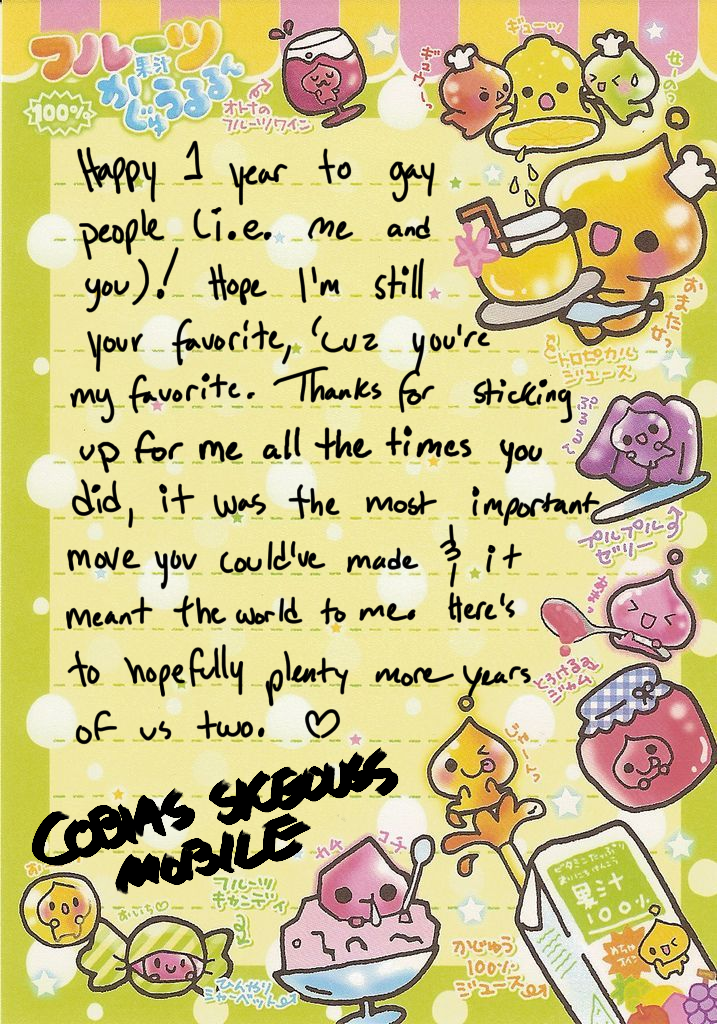 フルーツ
果汁
かじゅうるるん
100%
オトナの
フルーツワイン
ギュウーっ
ギューツ
せーのっ
Happy 1 year to gay
people (i.e. me and
you)! Hope I'm still
your favorite, 'cuz you're
my favorite. Thanks for sticking
up for me all the times you
did, it was the most important
move you could've made & it
meant the world to me. Here's
to hopefully plenty more years
of us two. ♡
おまたせっ
トロピカル
ジュース
プルプル
ゼリー
とろける
ジャム
COBIAS
MOBILE
カチ コチ
フルーツ
キャンディ
ひんやり
シャーベット
かじゅう
100%
ジュース
ビタミンたっぷり
果汁
100%